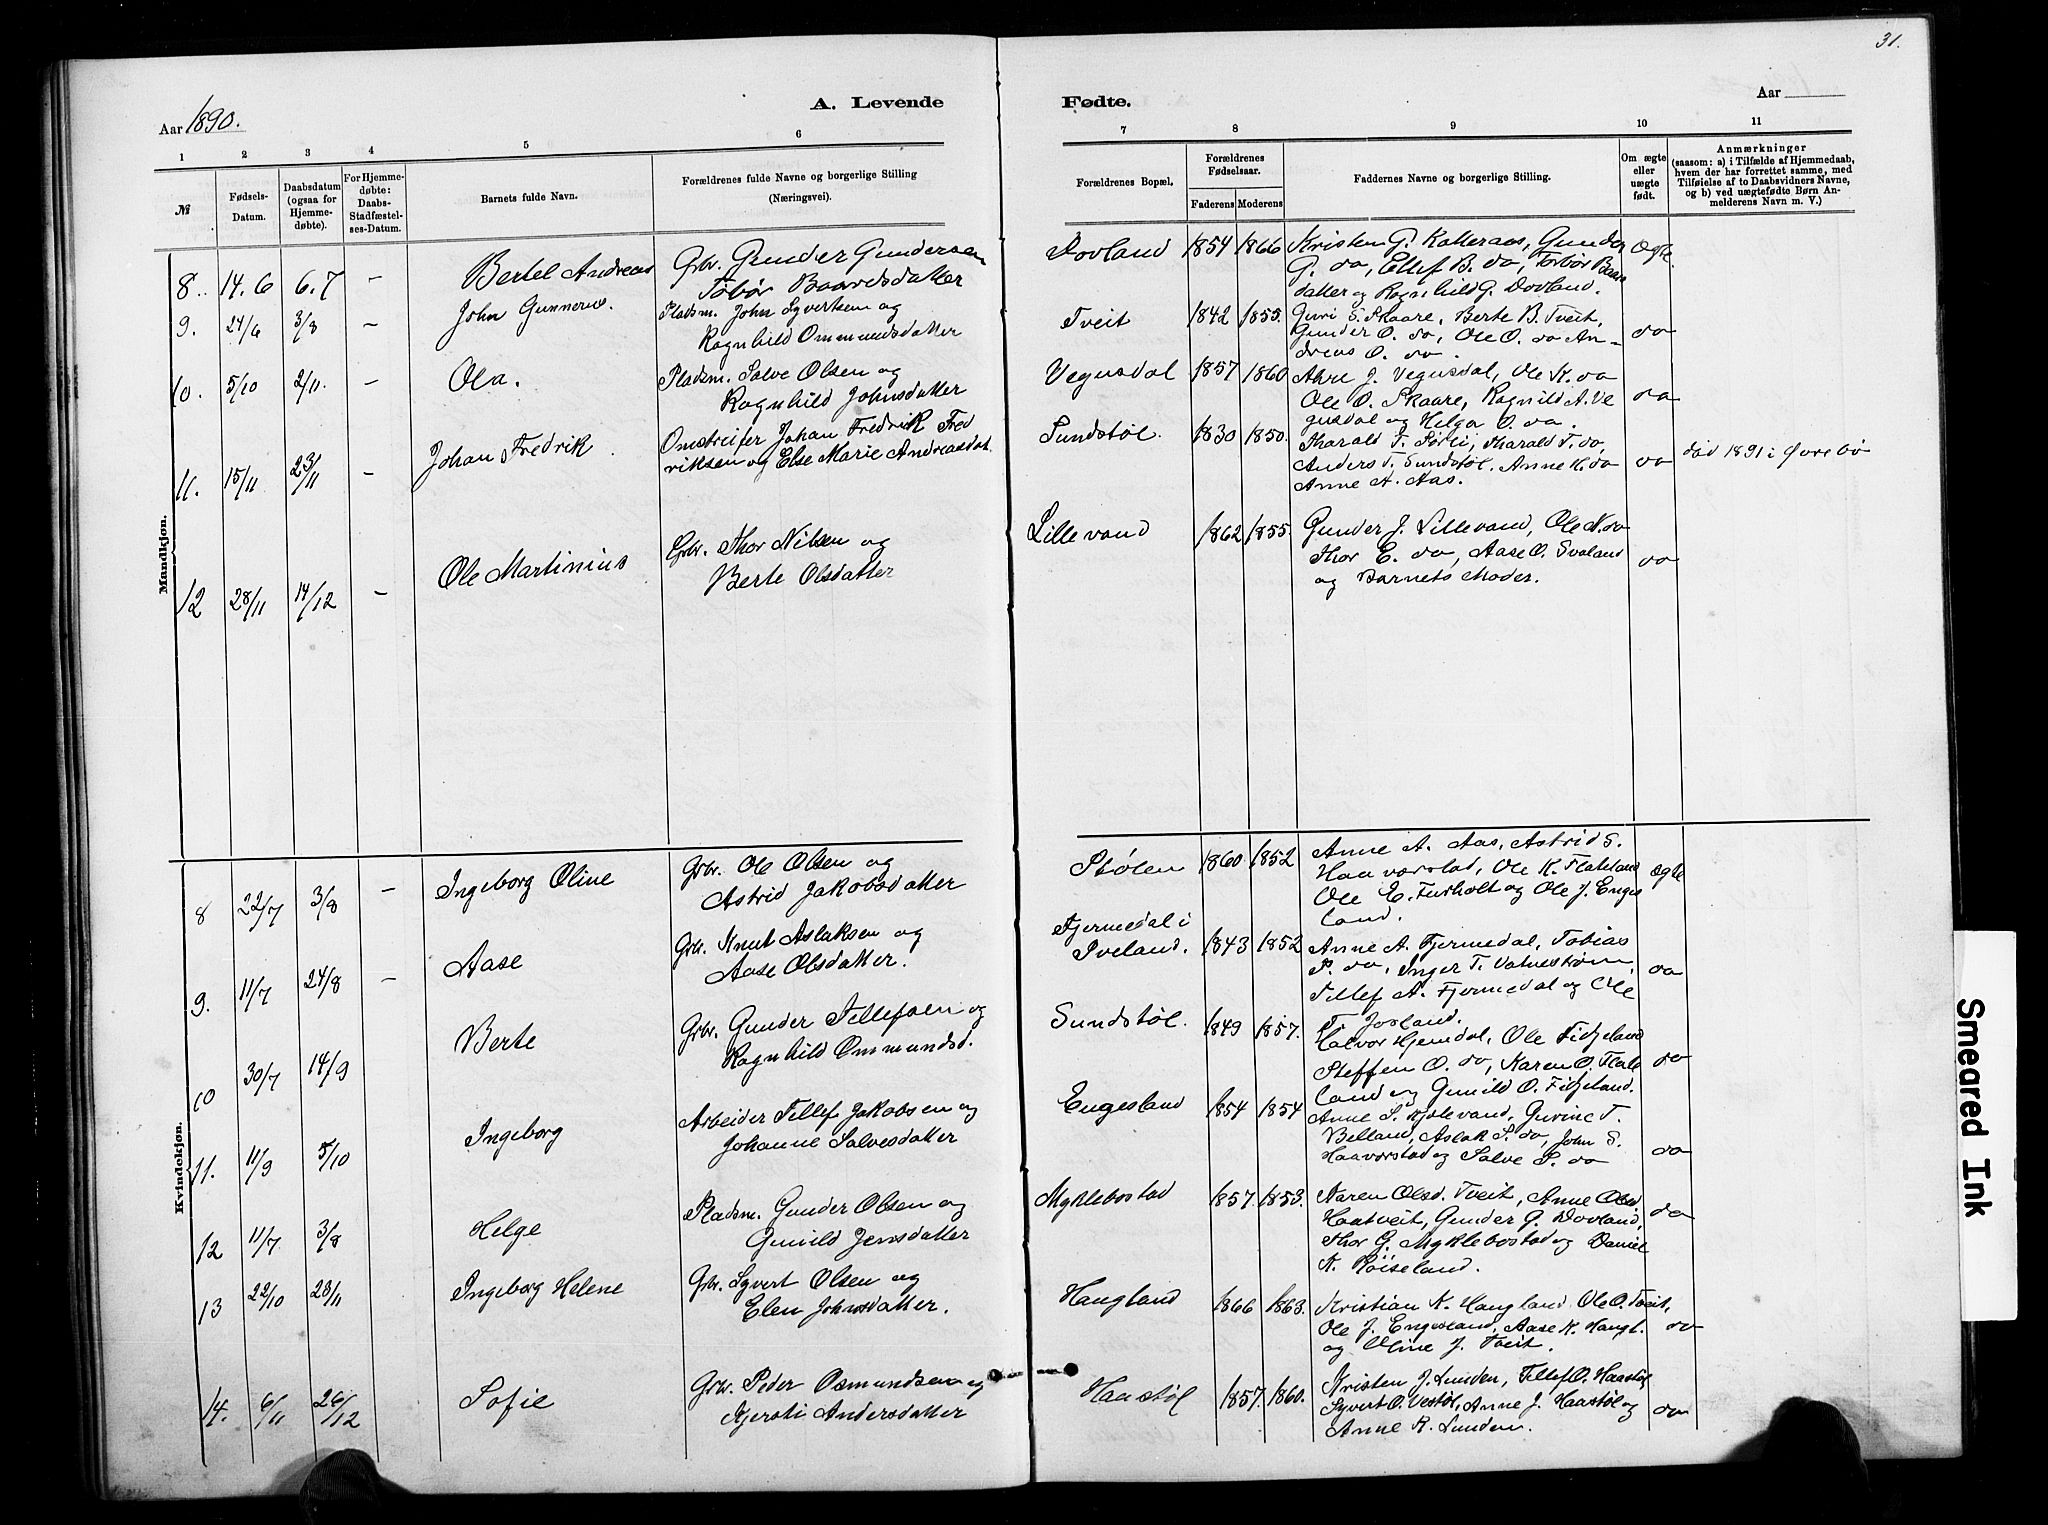 31.
Aar 1890.
A. Levende
Fødte.
Aar
1 2 3 4 5 6
7 8 9 10 11
№
Fødsels-Datum.
Daabsdatum (ogsaa for Hjemme-døbte).
For Hjemme-døbte: Daabs-Stadfæstel-ses-Datum.
Barnets fulde Navn.
Forældrenes fulde Navne og borgerlige Stilling
(Næringsvei).
Forældrenes Bopæl,
Forældrenes Fødselsaar.
Faderens Moderens
Faddernes Navne og borgerlige Stilling.
Om ægte eller uægte født.
Anmærkninger
(saasom: a) i Tilfælde af Hjemmedaab,
hvem der har forrettet samme, med
Tilføielse af to Daabsvidners Navne,
og b) ved uægtefødte Børn An-
melderens Navn m. V.)
Mandkjøn.
8. 14.6 6.7 – Bertel Andreas Grbr. Gunder Gundersen
Tobør Baardsdatter
Dovland 1854 1866 Kristen G. Katteraas, Gunder Ægte.
G. do, Ellef B. do, Torbør Baars
datter og Ragnhild G. Dovland.
9. 24/6 3/8 – John Gunnerus. Pladsm. John Syvertsen og
Ragnhild Ommundsdatter
Tveit 1842 1855. Guri S. Skaare, Berte B. Tveit,
Gunder O. do, Ole O. do An- do
dreas O. do.
10. 5/10 2/11. – Ola. Pladsm. Salve Olsen og
Ragnhild Johnsdatter
Vegusdal 1857 1860 J. Vegusdal, Ole K. do
Ole O. Skaare, Ragnild A. Ve do
gusdal og Helga O. do.
11. 15/11 23/11 – Johan Fredrik Omstreifer Johan Fredrik Fred
riksen og Else Marie Andreasdat.
Sundstøl. 1830 1850. Tharald T. Sørli, Tharald T. do,
Anders T. Sundstøl. Anne K. do do død 1891 i Øvrebø
Anne A. Aas.
12 28/11 14/12 – Ole Martinius Grbr. Thor Nilsen og
Berte Olsdatter
Lillevand 1862 1855. Gunder J. Lillevand, Ole N. do
Thor E. do, Aase O. Svaland do
og Barnets Moder.
Kvindekjøn.
8 22/7 3/8 – Ingeborg Oline Grbr. Ole Olsen og
Astrid Jakobsdatter
Stølen 1860 1852 Anne A. Aas, Astrid S.
Haavorstad, Ole K. Flateland ægte
Ole E. Furholt og Ole J. Enges
land.
9. 11/7 24/8 – Aase Grbr. Knut Aslaksen og
Aase Olsdatter.
Fjermedal i
Iveland. 1843 1852 Anne A. Fjermedal, Tobias
P. do, Inger T. Vatnestrøm, do
Tellef A. Fjermedal og Ole
T. Josland.
10 30/7 14/9 Berte Grbr. Gunder Tellefsen og
Ragnhild Ommundsd.
Sundstøl. 1849 1857. Halvor Hjemdal, Ole Fidjeland
Steffen O. do, Karen O. Flate do
land og Gunild O. Fidjeland.
11. 11/9 5/10 Ingeborg Arbeider Tellef Jakobsen og
Johanne Salvesdatter
Engesland 1854 1854 Anne S. Kjolevand, Gurine T.
Belland, Aslak S. do, John S.
Haavorstad og Salve S. do do
12 11/7 3/8 Helge Pladsm. Gunder Olsen og
Gunild Jensdatter
Myklebostad 1857. 1853. Karen Olsd. Tveit, Anne Olsd.
Haatveit, Gunder G. Dovland, do
Thor G. Myklebostad og Daniel
A. Røiseland.
13 22/10 23/11 Ingeborg Helene Grbr. Syvert Olsen og
Elen Johnsdatter.
Haugland 1866 1863. Kristian K. Haugland Ole O. Tveit,
Ole J. Engesland, Aase K. Haugl. do
og Oline J. Tveit.
14. 6/11 26/12 Sofie Grbr. Peder Osmundsen og
Kjersti Andersdatter
Haastøl 1857. 1860. Kristen J. Lunden, Tellef O. Haastøl
Syvert O. Vestøl, Anne J. Haastøl og do
Anne K. Lunden.
Smeared Ink